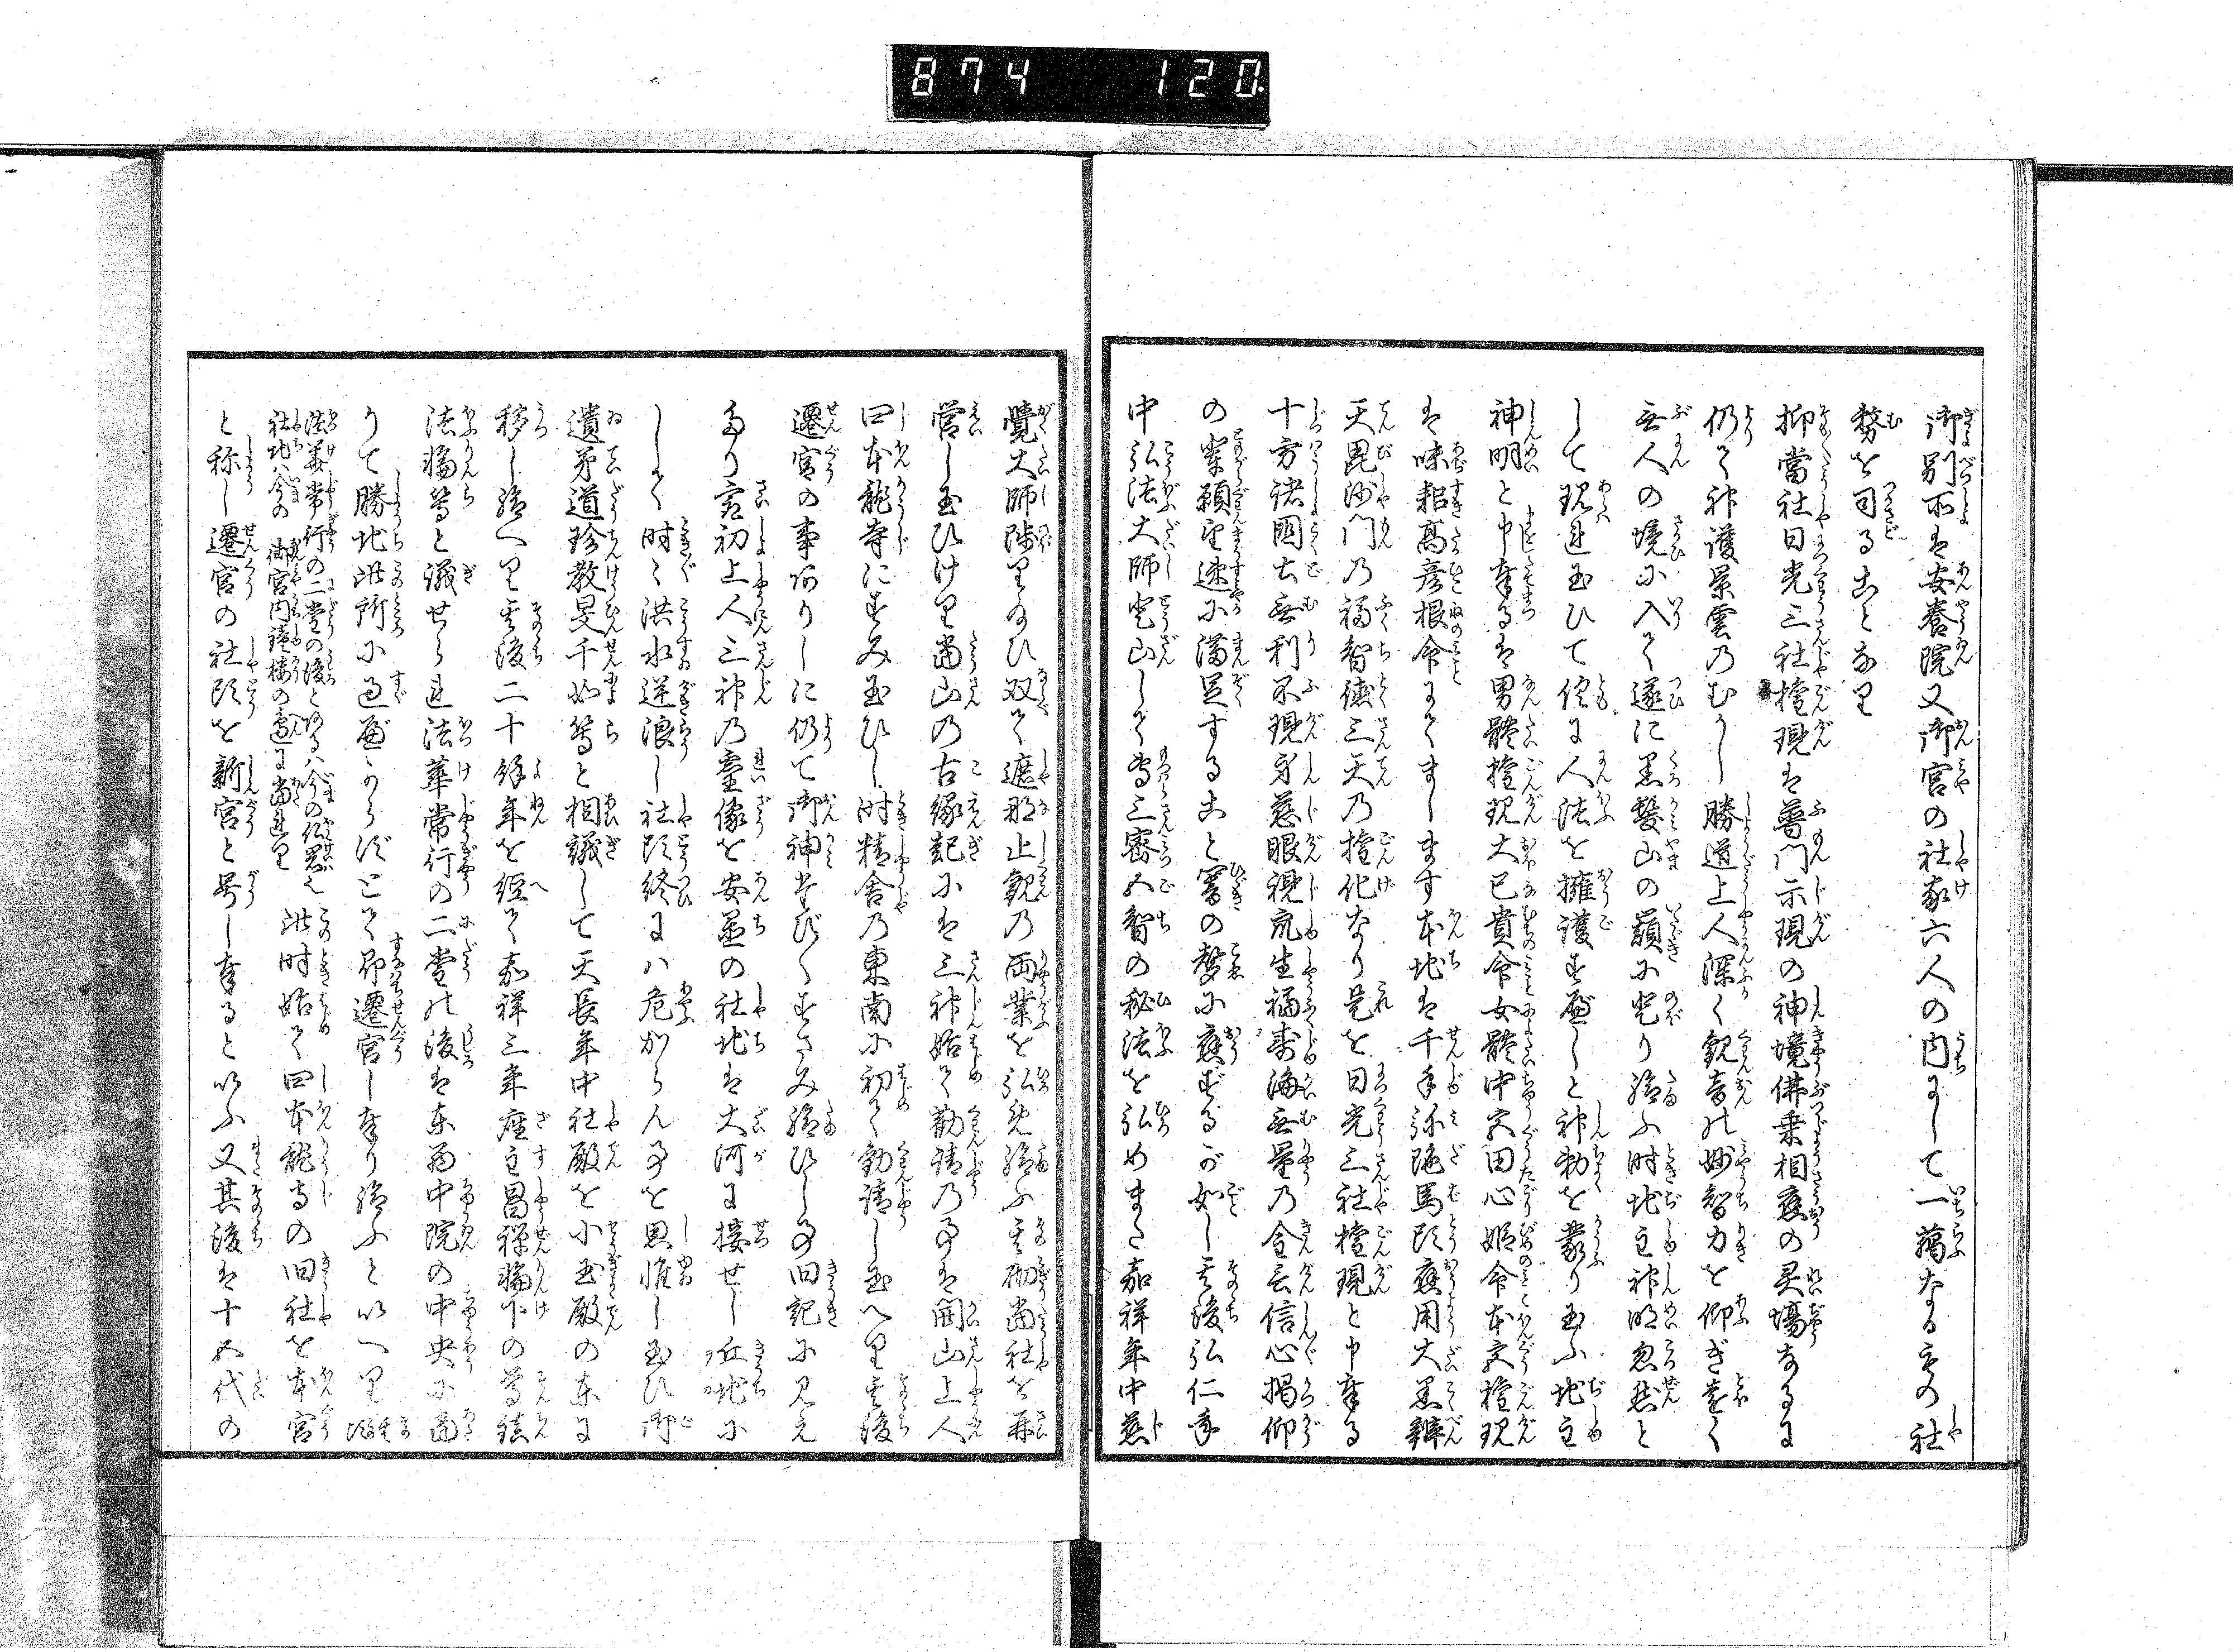 874 120
御別所は安養院又御宮の社家六人の内にして一﨟なるもの社
務を司ることなり
抑當社日光三社権現は普門示現の神境佛乗相應の灵場なるに
仍て神護景雲のむかし勝道上人深く観音の妙智力を仰ぎ遠く
無人の境に入て遂に黒髪山の巓に登り給ふ時地主神明忽然と
して現れ玉ひて侘に人法を擁護すべしと神勅を蒙り玉ふ地主
神明と申奉るは男體権現大已貴命女體中宮田心姫命本宮権現
は味耜高彦根命にてまします本地は千手弥陁馬頭應用大黒辨
天毘沙門の福智徳三天の権化なり是を日光三社権現と申奉る
十方諸國土無利不現身慈眼視衆生福壽海無量の金言信心掲仰
の輩願望速に満足すること響の聲に應ずるが如し其後弘仁年
中弘法大師登山して専三密五智の秘法を弘めまた嘉祥年中慈
覺大師陟りのひ双て遮那止観の両業を弘め給ふ其砌當社を再
營し玉ひけり當山の古縁起には三神始て勧請の事は開山上人
四本龍寺にすみ玉ひし時精舎の東南に初て勧請し玉へり其後
遷宮の事ありしに仍て御神さびくすさみ給ひしの旧記に見え
たり宮初上人三神の靈像を安置の社地は大河に接せし丘地に
して時々洪水逆浪し社頭終には危からん事を思惟し玉ひ御
遺弟道珍教旻千如等と相議して天長年中社殿を小玉殿の東に
移し給へり其後二十餘年を經て嘉祥三年座主昌禅輪下の尊鎮
法輪等と議せられ法華常行の二堂の後は東西中院の中央に當
りて勝地此所に過べからずとて即遷宮し奉り給ふといへり
法華常行の二堂の後とあるは今の仮恩也
社地は今の御宮内鐘樓の邊に當れり此時始て四本龍寺の旧社を本宮
と称し遷宮の社頭を新宮と号し奉ると以ふ又其後は十五代の